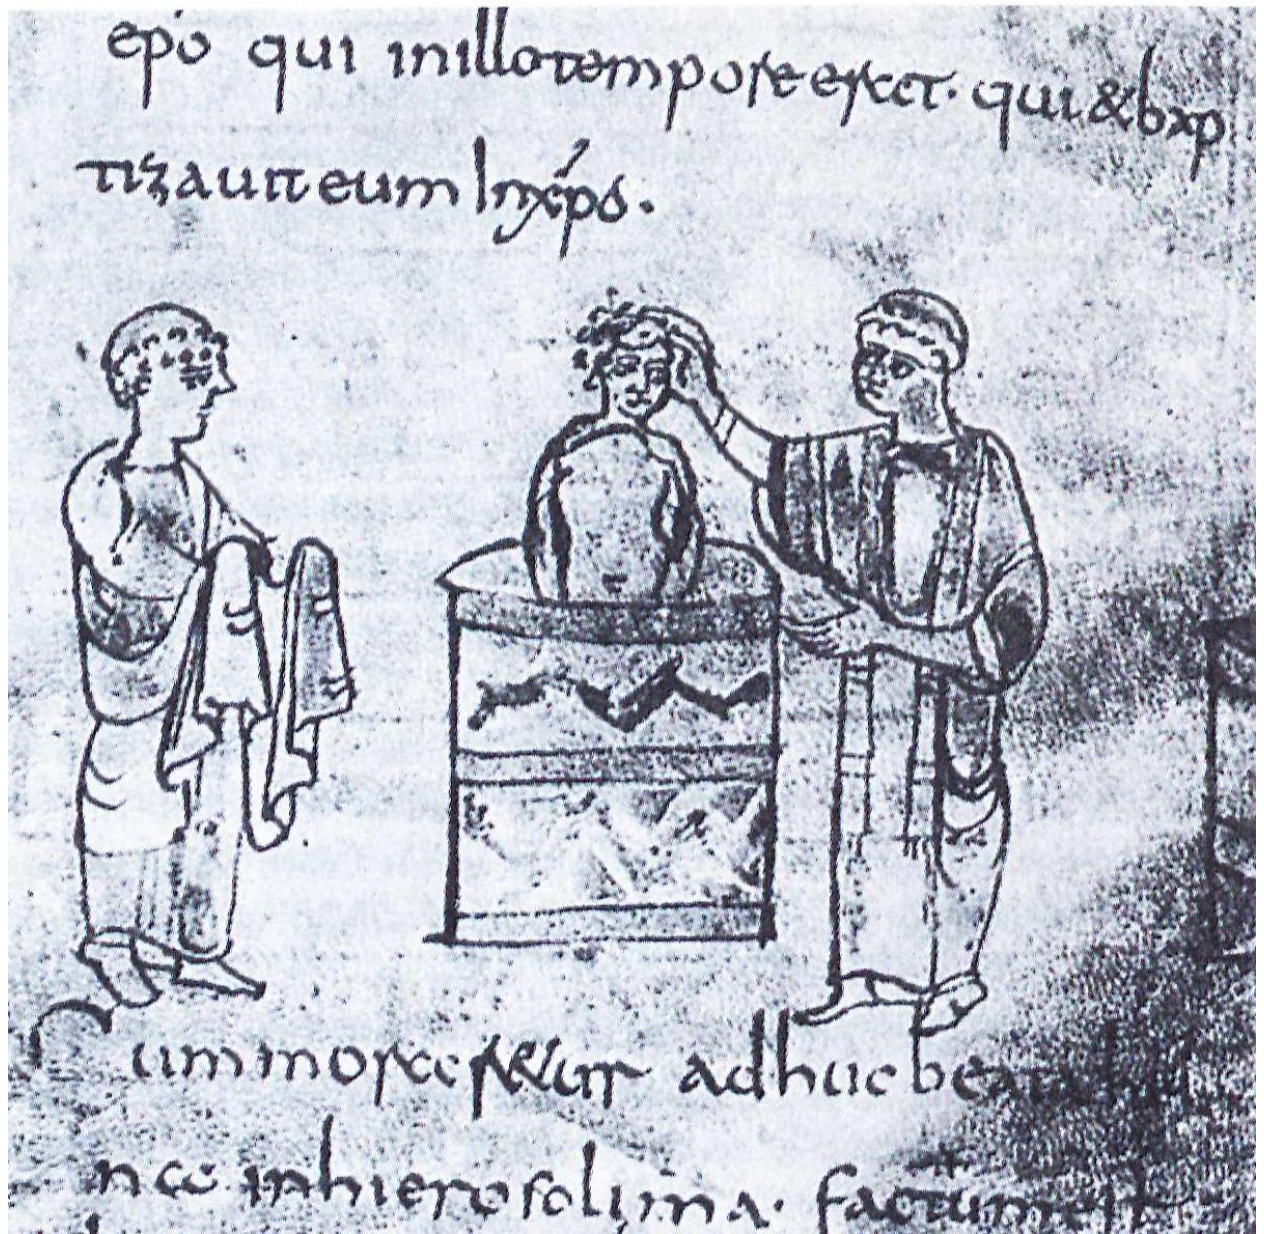 epō qui inillotempore esset. qui & bap
tizauit eum In xpō.
Cum morar&ur adhuc beata
na inhierosolima. factum est